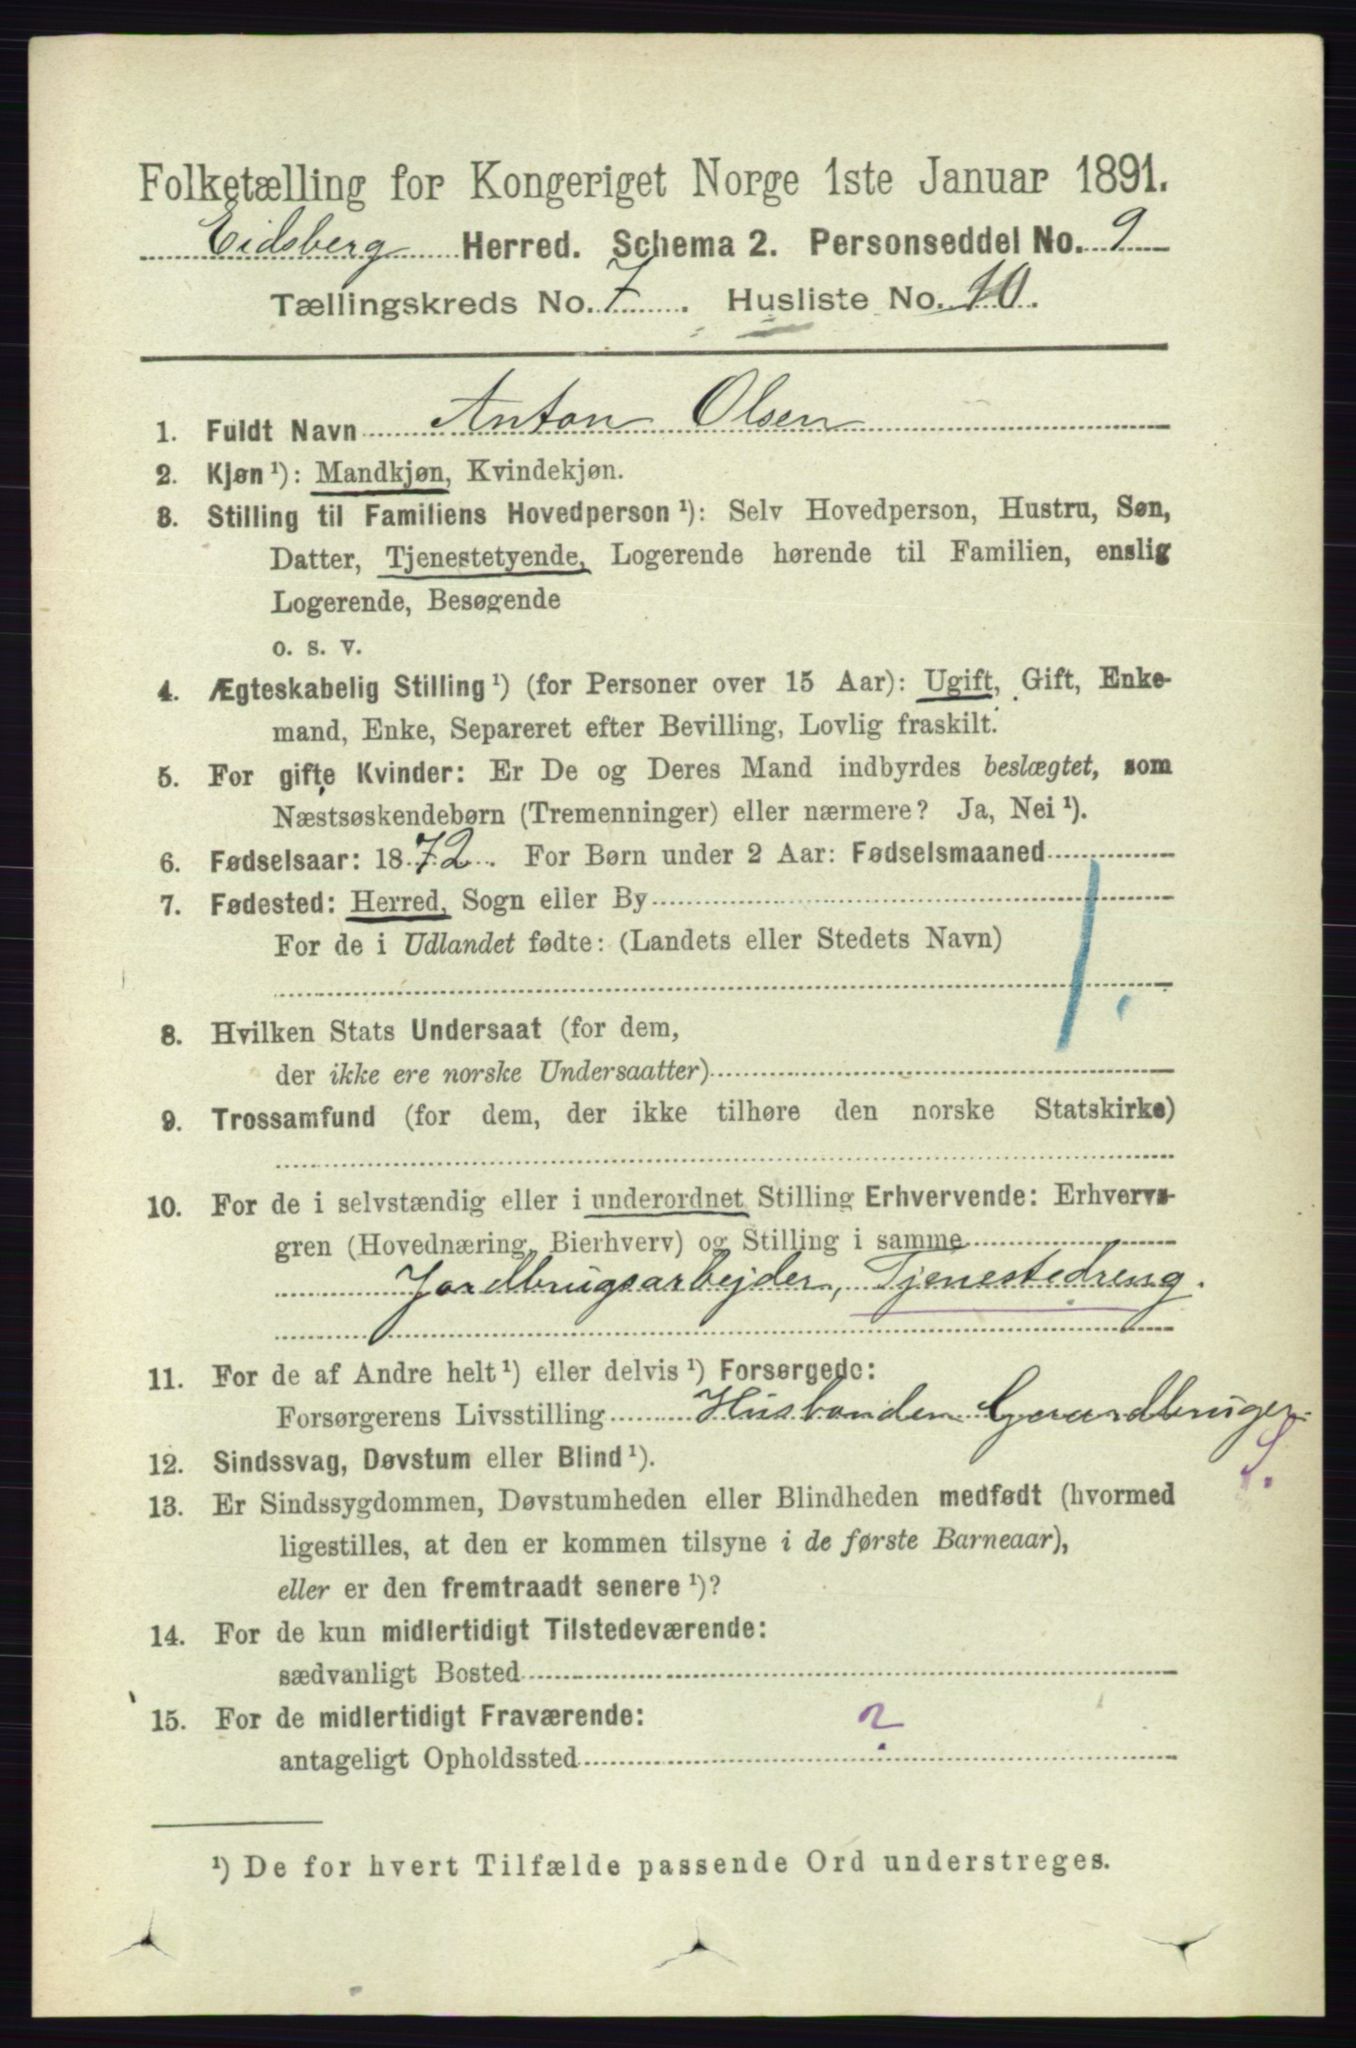 Folketælling for Kongeriget Norge 1ste Januar 1891.
Eidsberg Herred. Schema 2. Personseddel No. 9
Tællingskreds No. 7. Husliste No. 10.
1. Fuldt Navn Anton Olsen
2. Kjøn ¹): Mandkjøn, Kvindekjøn.
3. Stilling til Familiens Hovedperson ¹): Selv Hovedperson, Hustru, Søn,
Datter, Tjenestetyende, Logerende hørende til Familien, enslig
Logerende, Besøgende
o. s. v.
4. Ægteskabelig Stilling ¹) (for Personer over 15 Aar): Ugift, Gift, Enke-
mand, Enke, Separeret efter Bevilling, Lovlig fraskilt.
5. For gifte Kvinder: Er De og Deres Mand indbyrdes beslægtet, som
Næstsøskendebørn (Tremenninger) eller nærmere? Ja, Nei ¹).
6. Fødselsaar: 1872. For Børn under 2 Aar: Fødselsmaaned
7. Fødested: Herred, Sogn eller By
For de i Udlandet fødte: (Landets eller Stedets Navn)
1.
8. Hvilken Stats Undersaat (for dem,
der ikke ere norske Undersaatter)
9. Trossamfund (for dem, der ikke tilhøre den norske Statskirke)
10. For de i selvstændig eller i underordnet Stilling Erhvervende: Erhvervs-
gren (Hovednæring, Bierhverv) og Stilling i samme
Jordbrugsarbejder, Tjenestedreng.
11. For de af Andre helt ¹) eller delvis ¹) Forsørgede:
Forsørgerens Livsstilling Husbonden Gaardbruger.
S.
12. Sindssvag, Døvstum eller Blind ¹).
13. Er Sindssygdommen, Døvstumheden eller Blindheden medfødt (hvormed
ligestilles, at den er kommen tilsyne i de første Barneaar),
eller er den fremtraadt senere ¹)?
14. For de kun midlertidigt Tilstedeværende:
sædvanligt Bosted
15. For de midlertidigt Fraværende:
antageligt Opholdssted ?
¹) De for hvert Tilfælde passende Ord understreges.